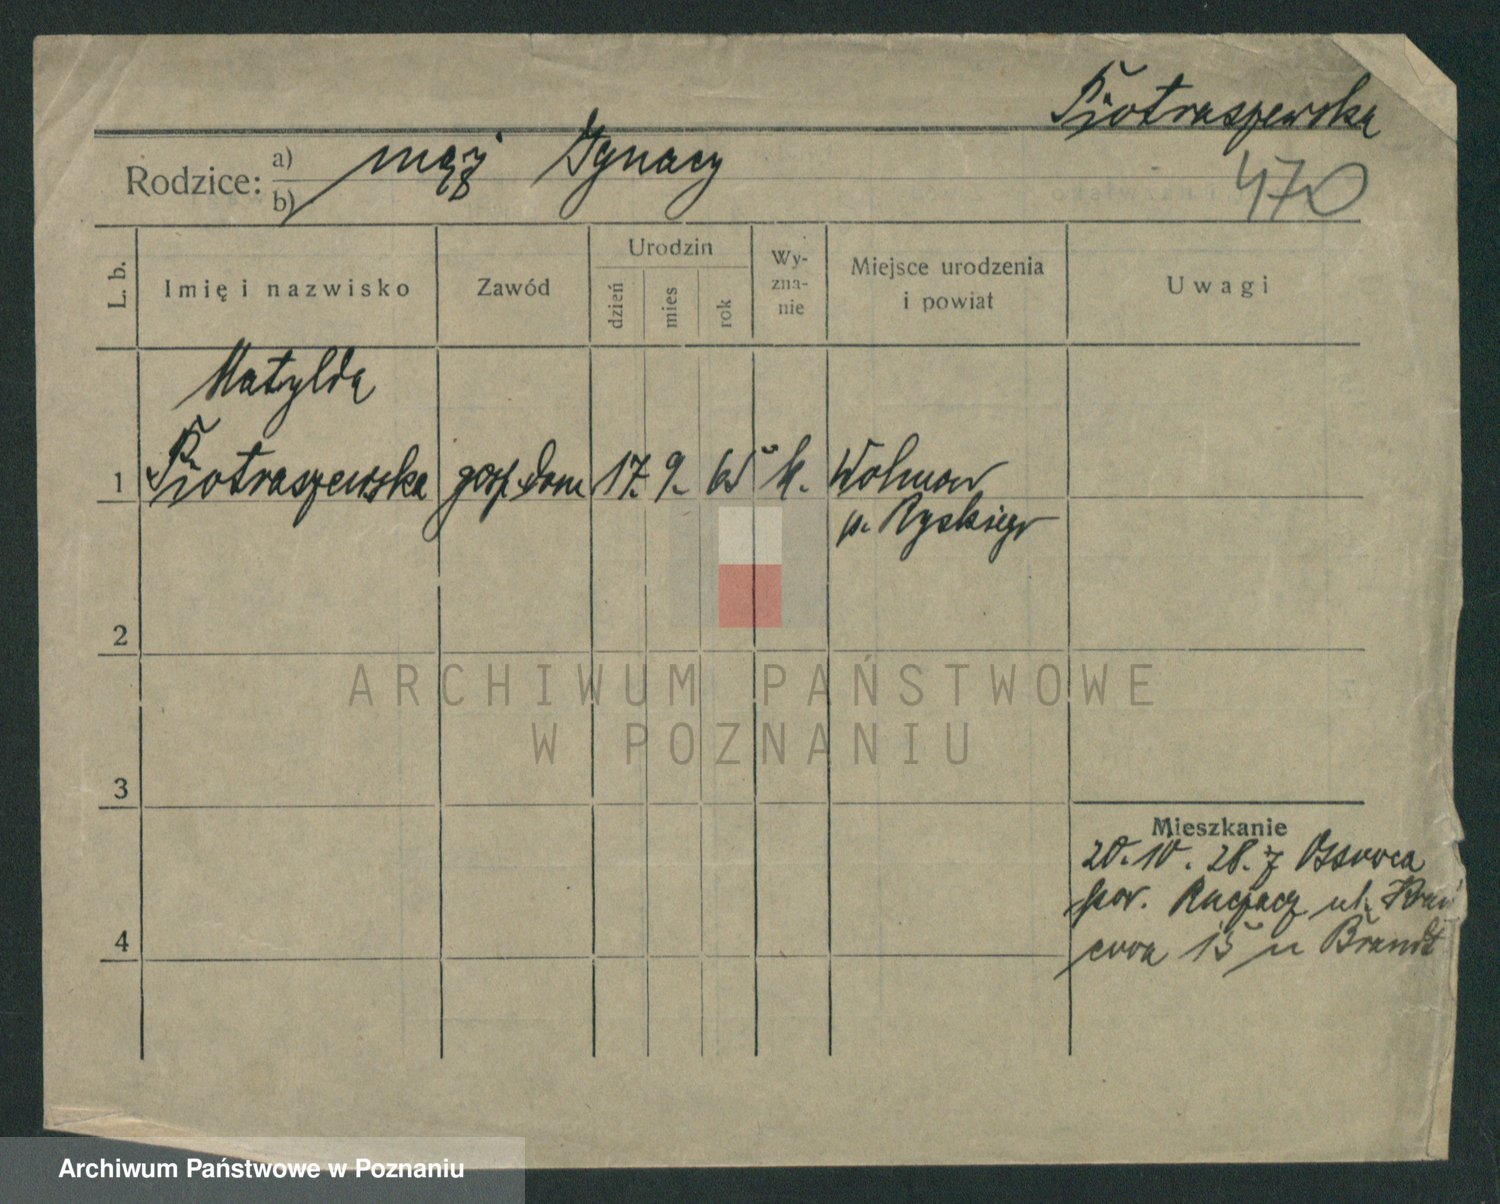 Piotraszewska
Rodzice:
a) mąż Ignacy
b)
470
L. b.
Imię i nazwisko
Zawód
Urodzin
dzień
mies
rok
Wy-
zna-
nie
Miejsce urodzenia
i powiat
Uwagi
Matylda
1 Piotraszewska gosp. dom 17. 9. 65 k. Wolmar
p. Ryskiego
2
3
4
Mieszkanie
20. 10. 28. z
pow. ul.
15 u Brandt
ARCHIWUM PAŃSTWOWE
W POZNANIU
Archiwum Państwowe w Poznaniu